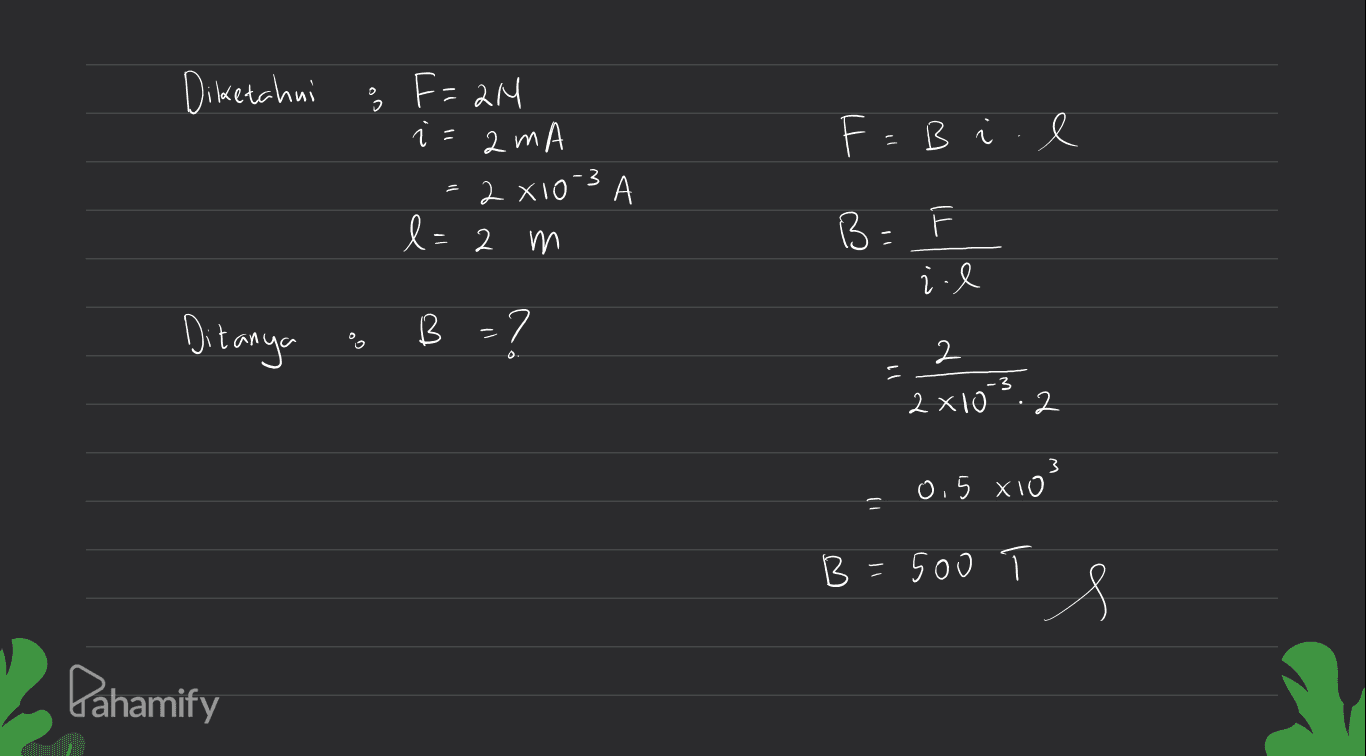 Diketahui : F = 2N
i = 2 mA
= 2 x10⁻³ A
l = 2 m
Ditanya : B = ?
F = B i . l
B = F / i . l
= 2 / 2 x10⁻³ . 2
= 0,5 x10³
B = 500 T
Pahamify